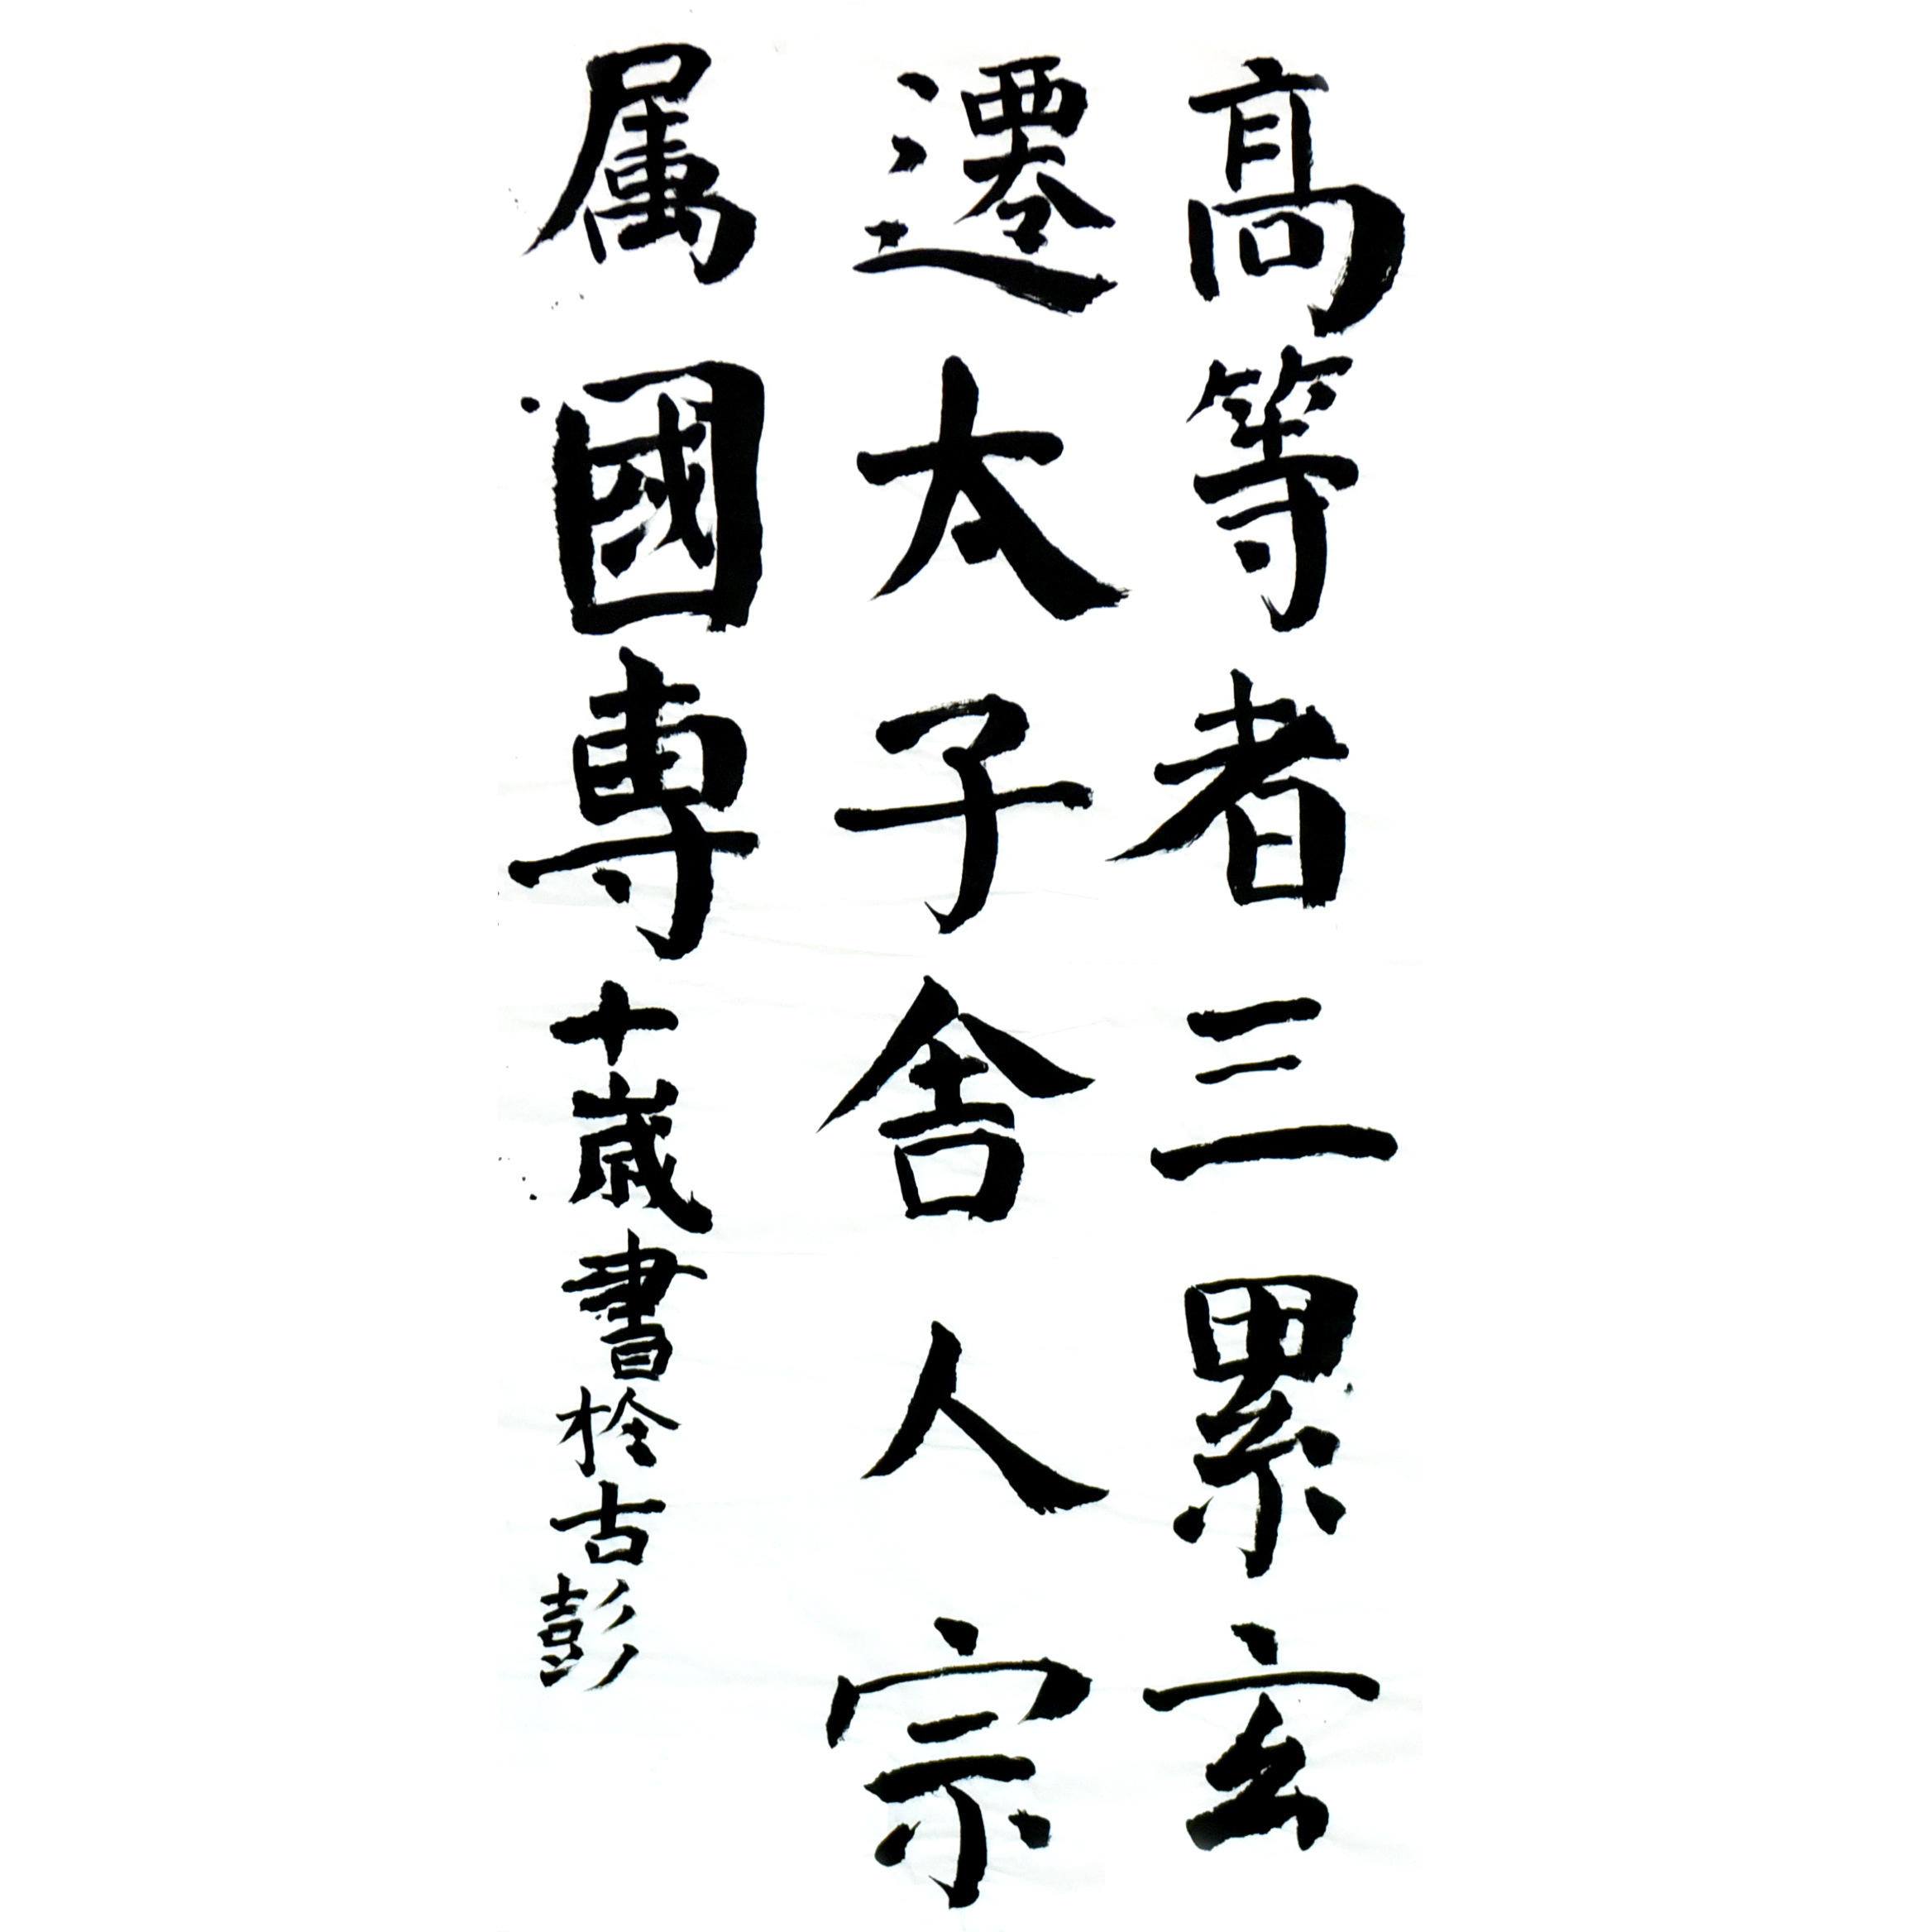 高等者三累玄
遷太子舍人宗
属國專十歲書於古彭